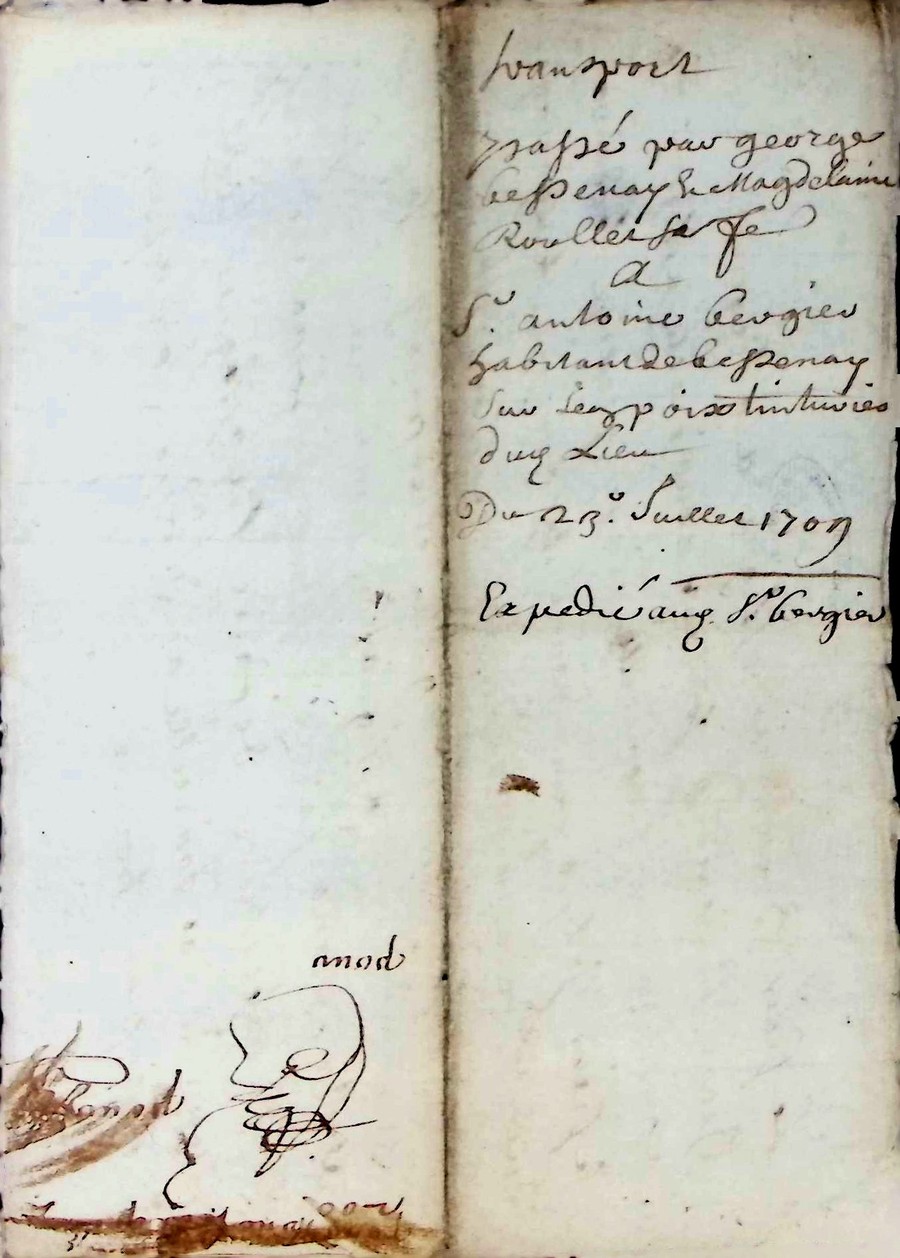 transport
passé par george
bessenay & Magdelaine
Roullet sa fe
A
Sr. antoine bergier
habitant de bessenay
Sur les poix
dud Lieu
Du 23e. Juillet 1709
Expedié aud Sr. bergier
anod